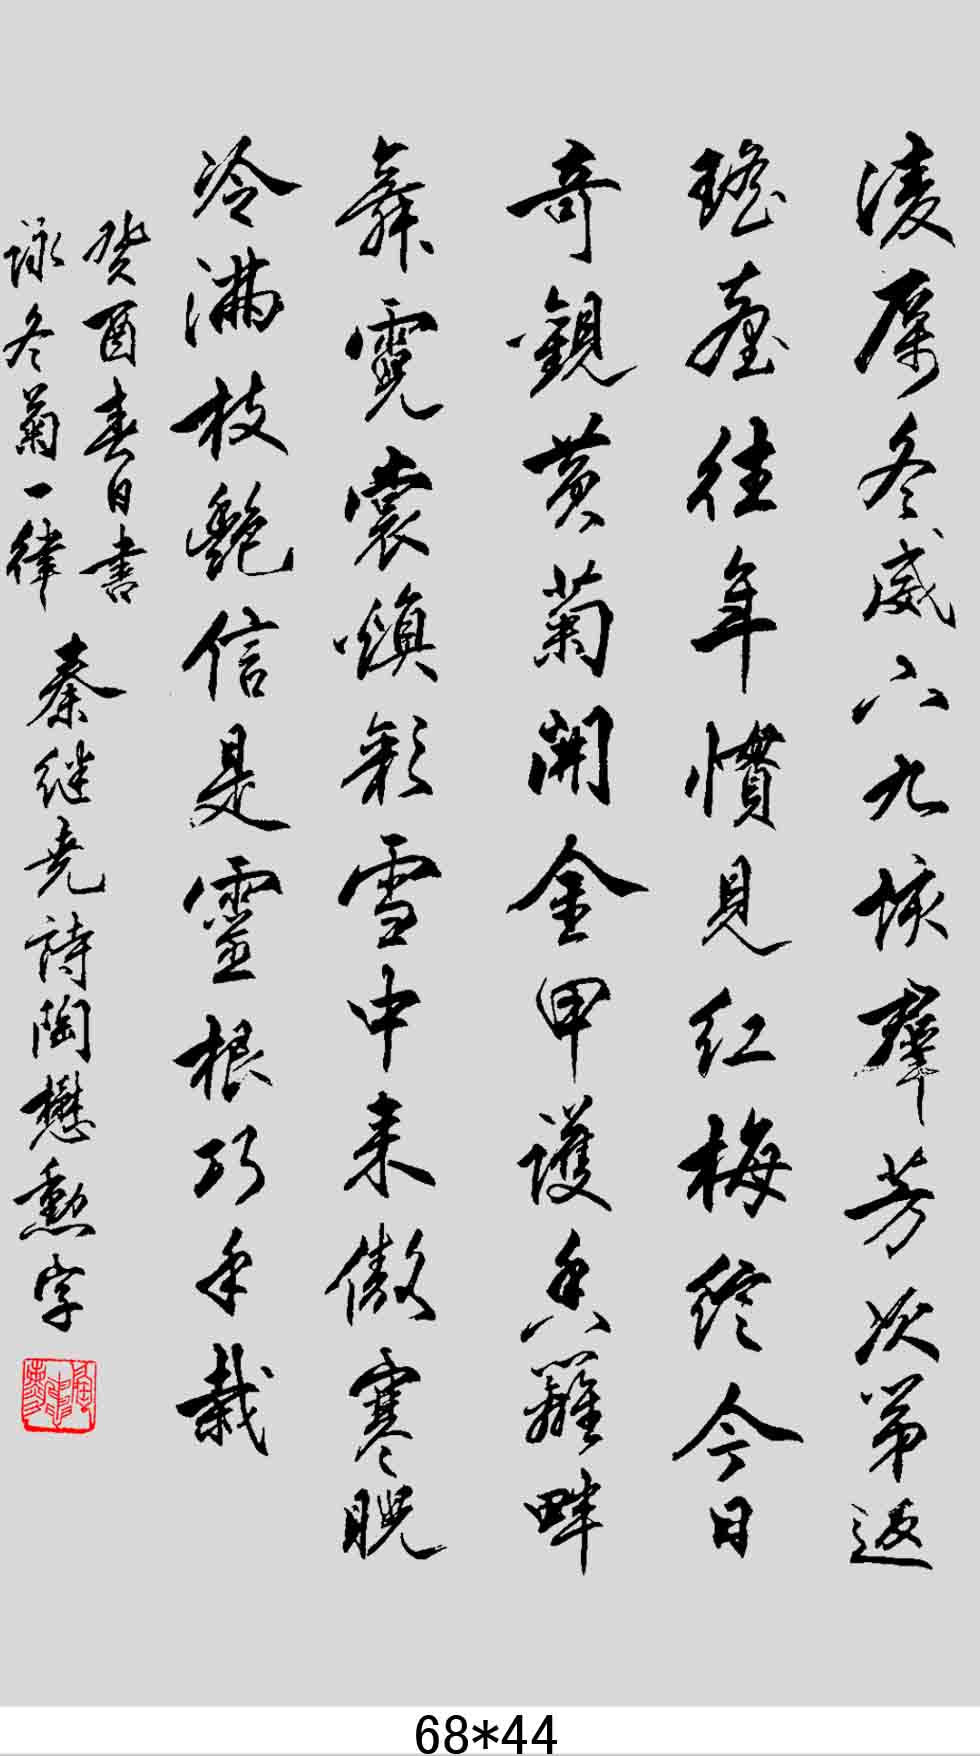 凌厲冬威六九垓群芳次第返
瑤臺往年慣見紅梅綻今日
奇觀黃菊開金甲護身籬畔
舞霓裳煥彩雪中来傲寒睨
冷滿枝艷信是靈根巧手栽
癸酉春日書
詠冬菊一律
秦继尧詩陶懋勳字
68*44